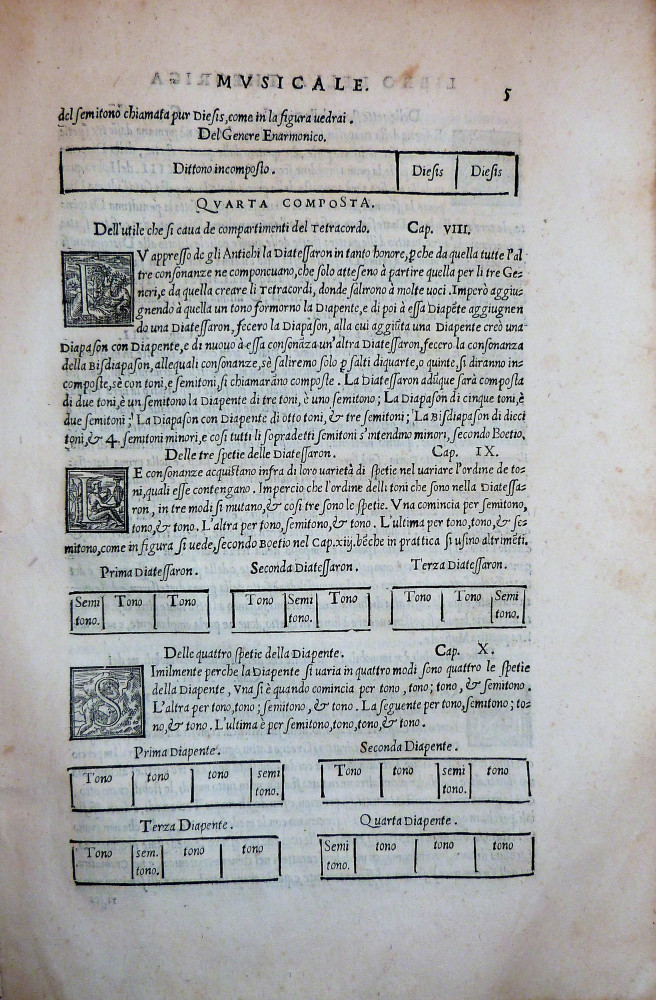 MVSICALE. 5
del semitono chiamata pur Diesis, come in la figura uedrai.
Del Genere Enarmonico.
Dittono incomposto. Diesis Diesis
QVARTA COMPOSTA.
Dell'utile che si caua de compartimenti del Tetracordo. Cap. VIII.
FV appresso de gli Antichi la Diatessaron in tanto honore, p̄che da quella tutte l'al
tre consonanze ne componeuano, che solo atteseno à partire quella per li tre Ge-
neri, e da quella creare li Tetracordi, donde salirono à molte uoci. Imperò aggiu-
gnendo à quella un tono formorno la Diapente, e di poi à essa Diapēte aggiugnen
do una Diatessaron, fecero la Diapason, alla cui aggiūta una Diapente creò una
Diapason con Diapente, e di nuouo à essa consonāza un'altra Diatessaron, fecero la consonanza
della Bisdiapason, allequali consonanze, sè saliremo solo p̄ salti diquarte, o quinte, si diranno in-
composte, sè con toni, e semitoni, si chiamarāno composte. La Diatessaron adūque sarà composta
di due toni, è un semitono la Diapente di tre toni, è uno semitono; La Diapason di cinque toni, è
due semitoni; La Diapason con Diapente di otto toni, & tre semitoni; La Bisdiapason di dieci
toni, & 4. semitoni minori, e cosi tutti li sopradetti semitoni s'intendino minori, secondo Boetio.
Delle tre spetie delle Diatessaron. Cap. IX.
LE consonanze acquistano infra di loro varietà di spetie nel uariare l'ordine de to-
ni, quali esse contengano. Impercio che l'ordine delli toni che sono nella Diatessa-
ron, in tre modi si mutano, & cosi tre sono le spetie. Vna comincia per semitono,
tono, & tono. L'altra per tono, semitono, & tono. L'ultima per tono, tono, & se-
mitono, come in figura si uede, secondo Boetio nel Cap. xiij. bēche in prattica si usino altrimēti.
Prima Diatessaron. Seconda Diatessaron. Terza Diatessaron.
Semi Tono Tono Tono Semi Tono Tono Tono Semi
tono. tono. tono.
Delle quattro spetie della Diapente. Cap. X.
SImilmente perche la Diapente si uaria in quattro modi sono quattro le spetie
della Diapente, Vna si è quando comincia per tono, tono; tono, & semitono.
L'altra per tono, tono; semitono, & tono. La seguente per tono, semitono; to-
no, & tono. L'ultima è per semitono, tono, tono, & tono.
Prima Diapente. Seconda Diapente.
Tono tono tono semi Tono tono semi tono
tono. tono.
Terza Diapente. Quarta Diapente.
Tono sem. tono tono Semi tono tono tono
tono. tono.